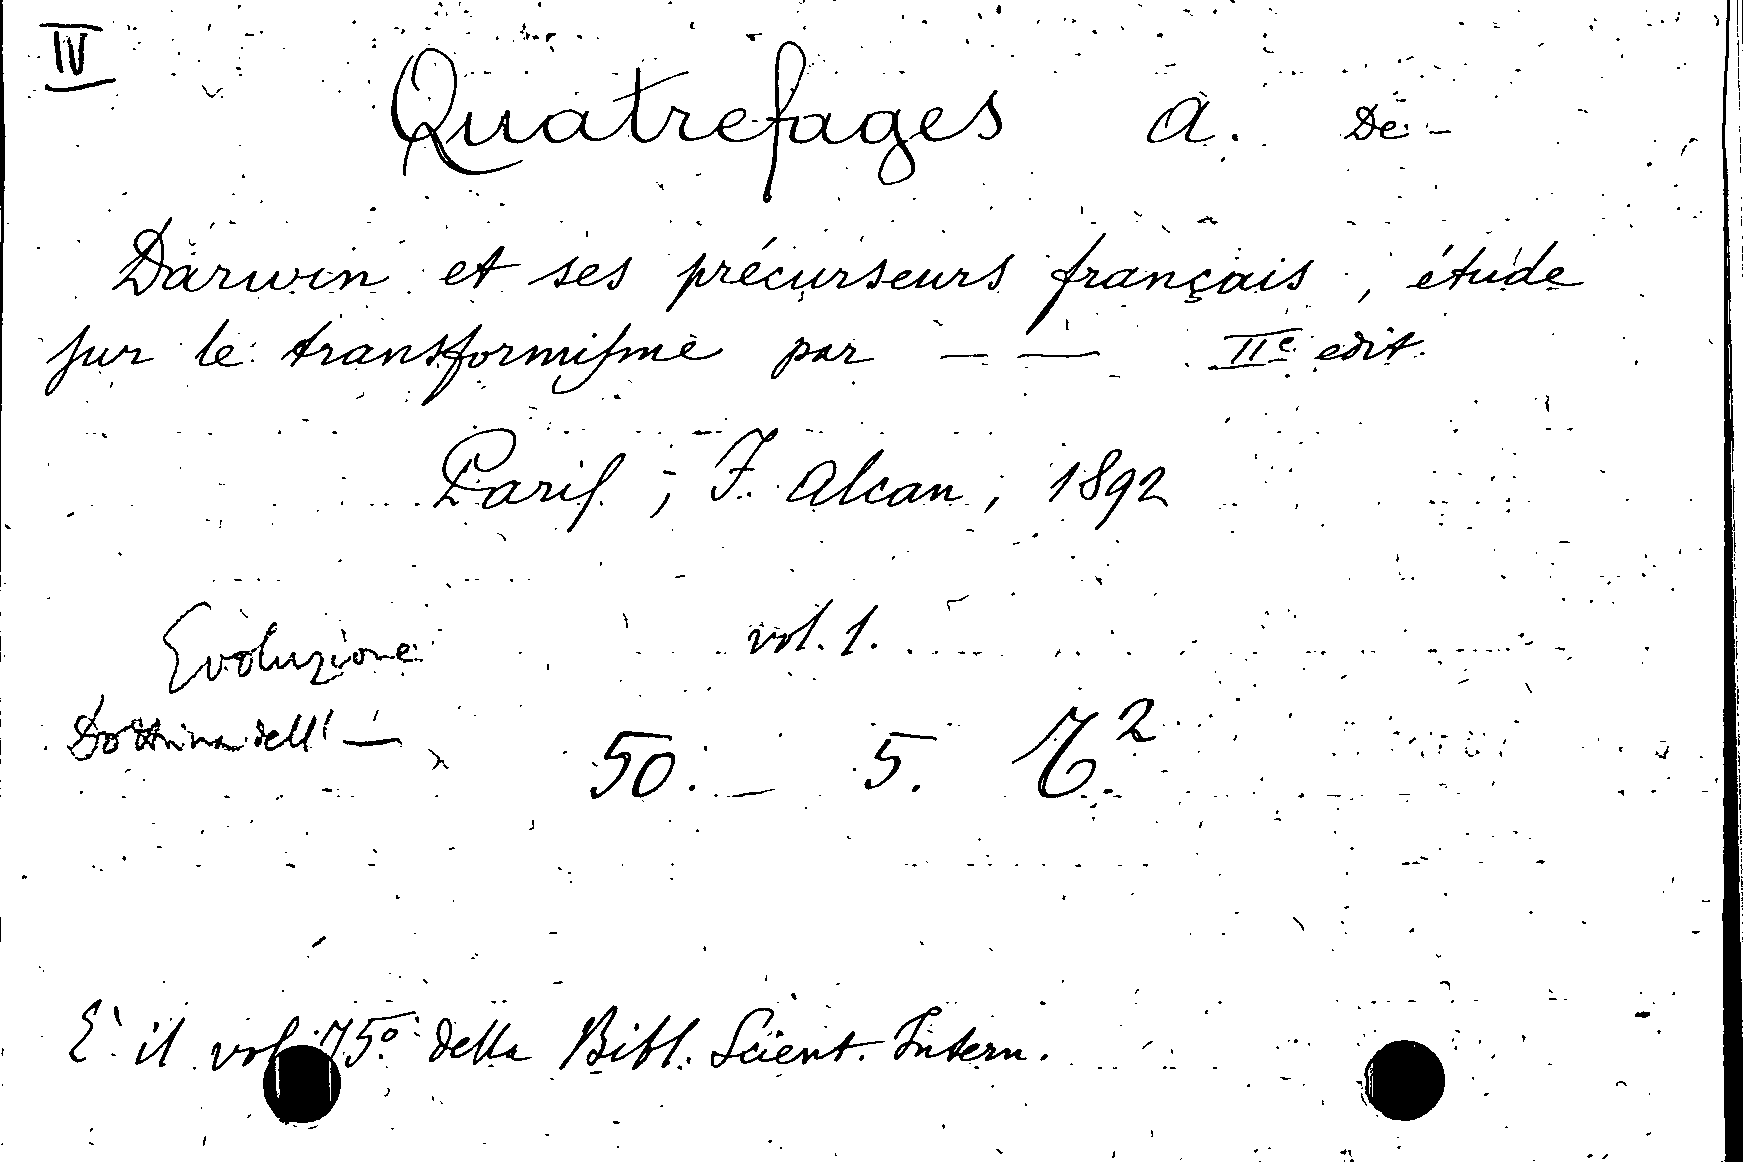 IV
Quatrefages A. De -
Darwin et ses précurseurs français, étude
sur le transformisme par — — IIe edit.
Paris, F. Alcan, 1892
vol. 1.
Evoluzione
Dottrina dell' —
50. — 5. 
E' il vol. 75º della Bibl. Scient. Intern.